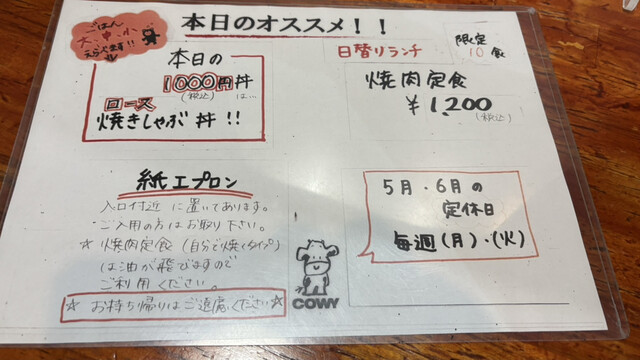 本日のオススメ！！
ごはん
大・中・小
えらべます！！
本日の
1000円丼
(税込) は…
ロース
焼きしゃぶ丼 !!
日替りランチ
限定
10食
焼肉定食
¥1,200
(税込)
紙エプロン
入口付近に置いてあります。
ご入用の方はお取り下さい。
☆焼肉定食(自分で焼くタイプ)
は油が飛びますので
ご利用ください。
☆お持ち帰りはご遠慮ください☆
5月・6月の
定休日
毎週(月)・(火)
COWY